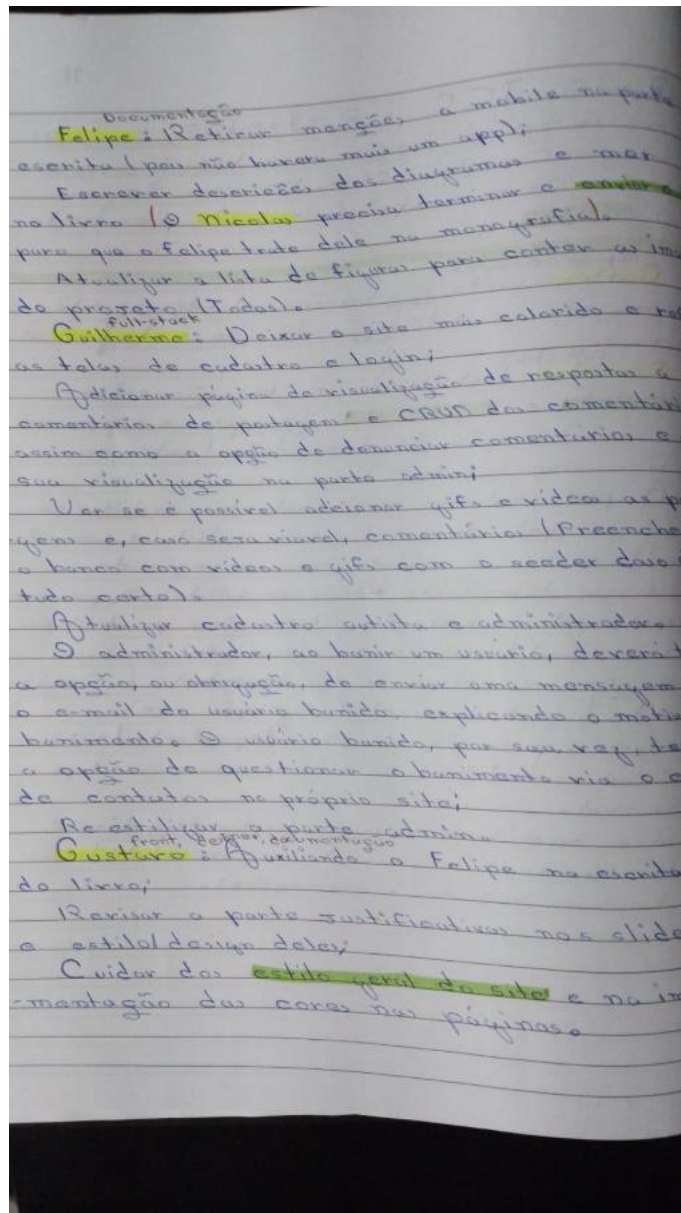 Documentação
Felipe: Retirar menções a mobile na parte
escrita (pois não haverá mais um app);
Escrever descrições dos diagramas e
no livro (O Nicolas precisa terminar e enviar
para que o felipe trate dele na monografia).
Atualizar a lista de figuras para conter as
do projeto (Todas).
full-stack
Guilherme: Deixar o site mais colorido e
as telas de cadastro e login;
Adicionar página de visualização de respostas a
comentários de postagem e CRUD dos
assim como a opção de denunciar comentários e
sua visualização na parte admin;
Ver se é possível adicionar gifs e vídeos as
e, caso seja viável, comentários (Preencher
o banco com vídeos e gifs com o seeder
tudo certo).
Atualizar cadastro autista e administrador.
O administrador, ao banir um usuário, deverá
a opção, ou obrigação, de enviar uma mensagem
o e-mail do usuário banido, explicando o
banimento. O usuário banido, por sua vez,
a opção de questionar o banimento via o
de contatos no próprio site;
Re estilizar a parte admin.
front, documentação
Gustavo: Auxiliando o Felipe na escrita
do livro;
Revisar a parte justificativas nos
e estilo/design deles;
Cuidar dos estilo geral do site e na
-mentação das cores nas páginas.